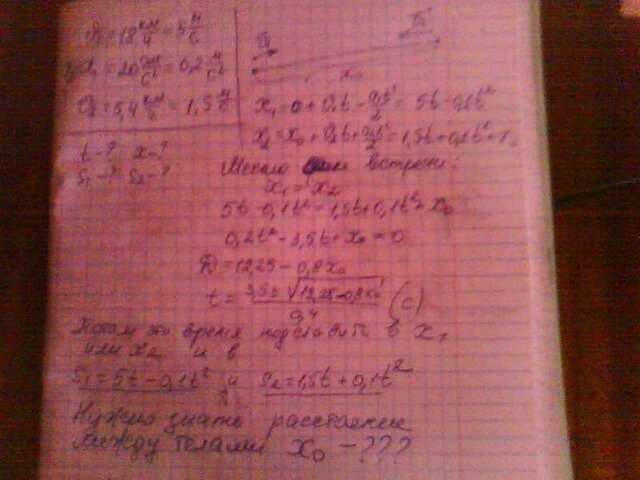 υ₁ = 18 км/ч = 5 м/с
a₁ = 20 см/с² = 0,2 м/с²
υ₂ = 5,4 км/ч = 1,5 м/с
t - ? x - ?
S₁ - ? S₂ - ?
x₀
x₁ = 0 + υ₁t - at²/2 = 5t - 0,1t²
x₂ = x₀ + υ₂t + at²/2 = 1,5t + 0,1t² +
Место встречи:
x₁ = x₂
5t - 0,1t² = 1,5t + 0,1t² + x₀
0,2t² - 3,5t + x₀ = 0
D = 12,25 - 0,8x₀
t = (3,5 ± √(12,25 - 0,8x₀))/0,4 (с)
Потом это время подставить в x₁
или x₂ и в
S₁ = 5t - 0,1t² и S₂ = 1,5t + 0,1t²
Нужно знать расстояние
между телами x₀ - ???